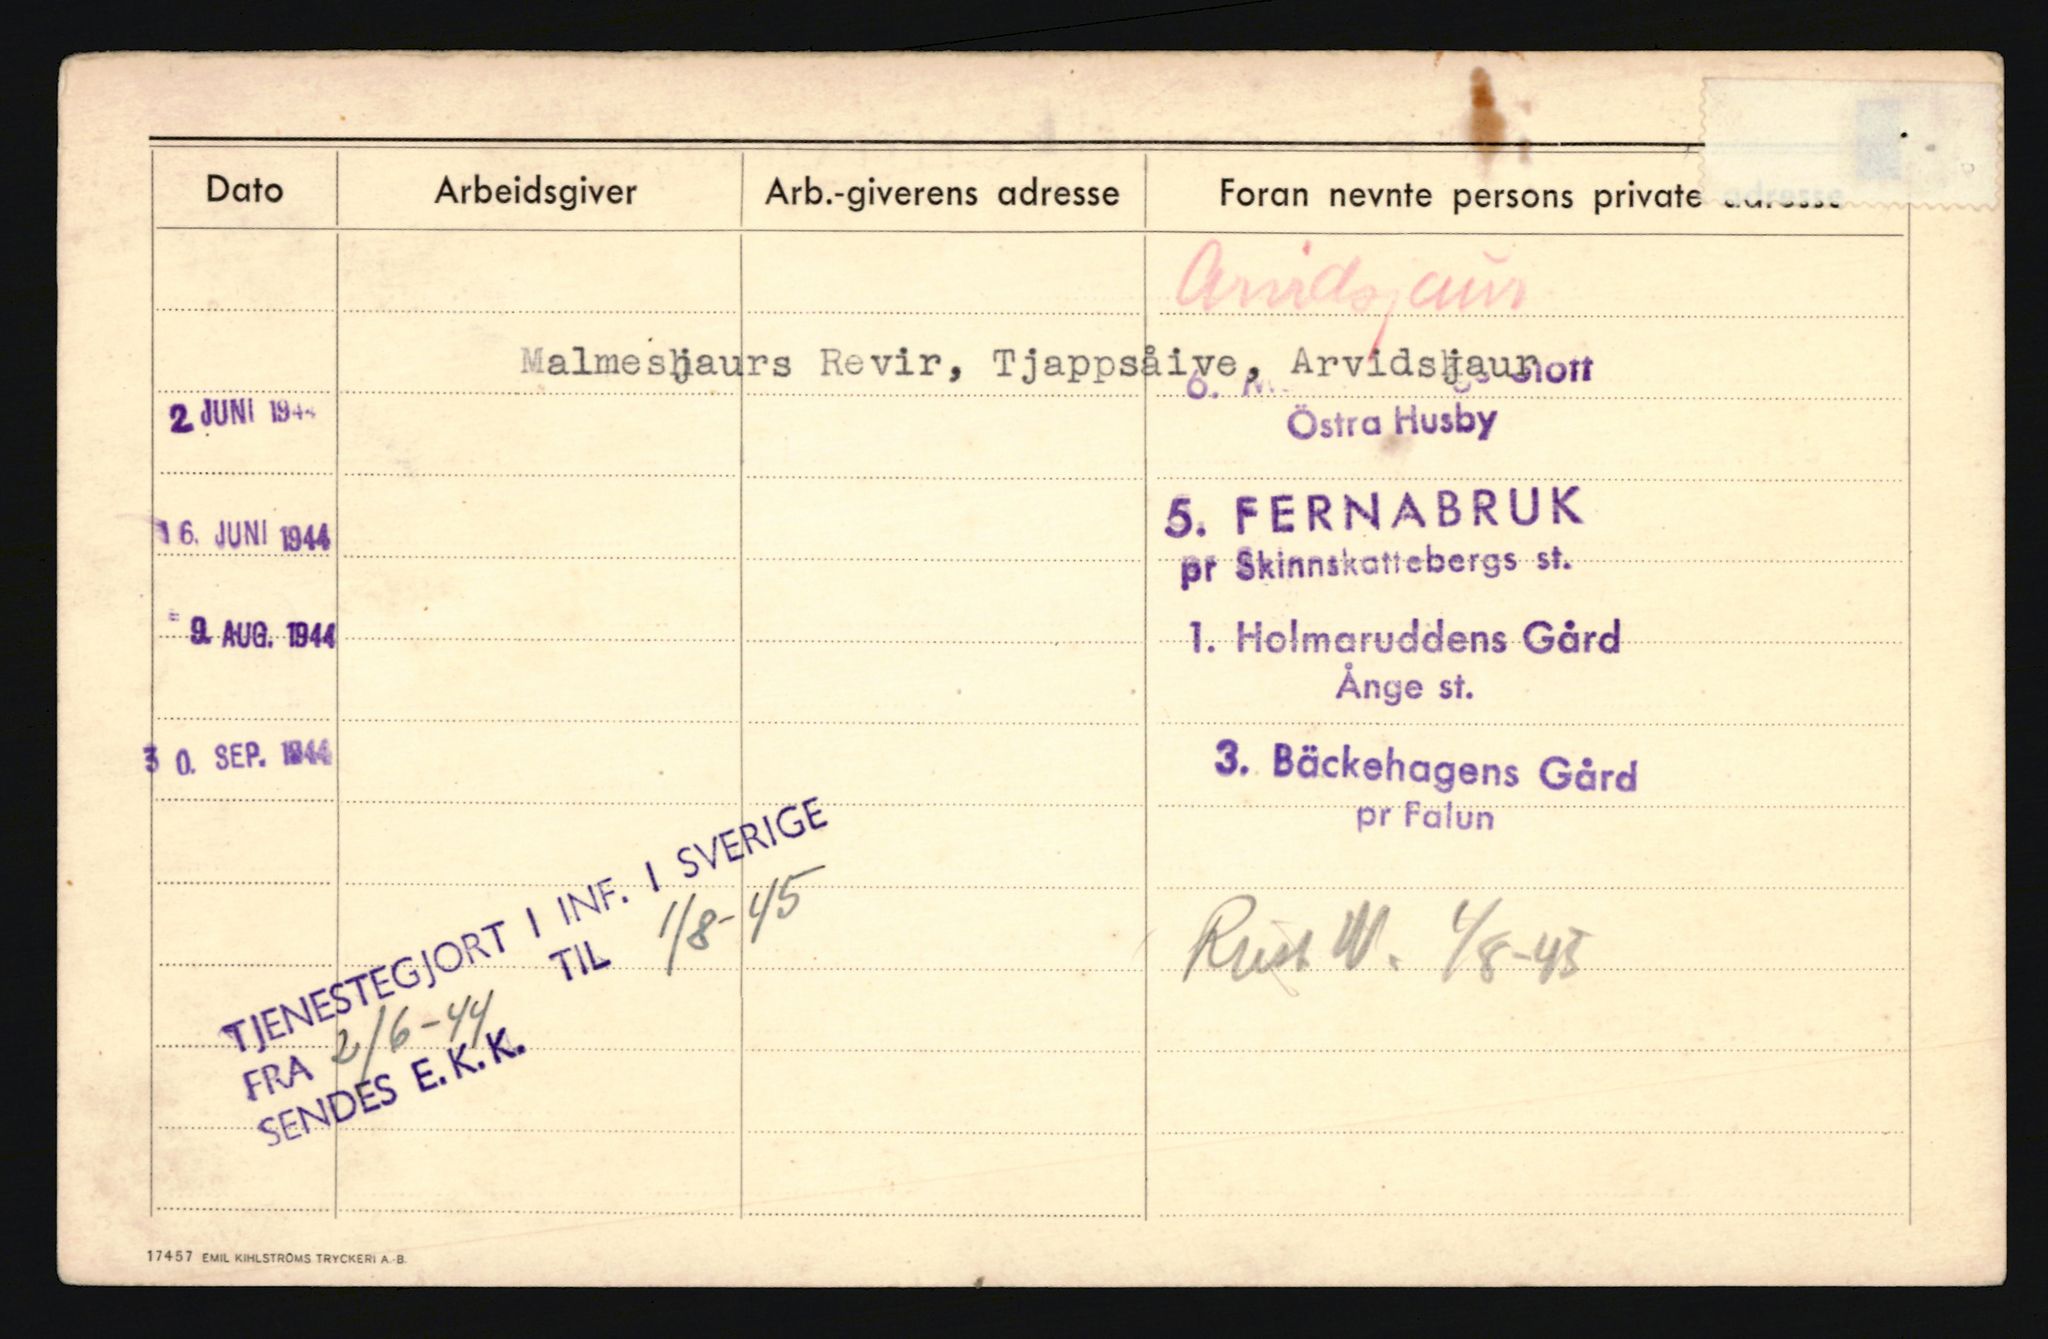 Dato Arbeidsgiver Arb.-giverens adresse Foran nevnte persons private adresse
Arvidsjaur
Malmesjaurs Revir, Tjappsåive, Arvidsjaur
6. slott
2 JUNI 1944 Östra Husby
5. FERNABRUK
16. JUNI 1944 pr Skinnskattebergs st.
9. AUG. 1944 1. Holmaruddens Gård
Ånge st.
30. SEP. 1944 3. Bäckehagens Gård
pr Falun
TJENESTEGJORT I INF. I SVERIGE
FRA 2/6-44 TIL 1/8-45
SENDES E.K.K.
W. 1/8-45
17457 EMIL KIHLSTRÖMS TRYCKERI A.-B.